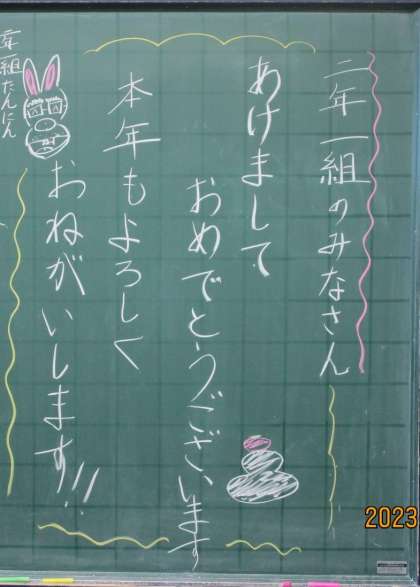 二年一組のみなさん
あけまして
おめでとうございます
本年もよろしく
おねがいします!!
年一組たんにん
2023